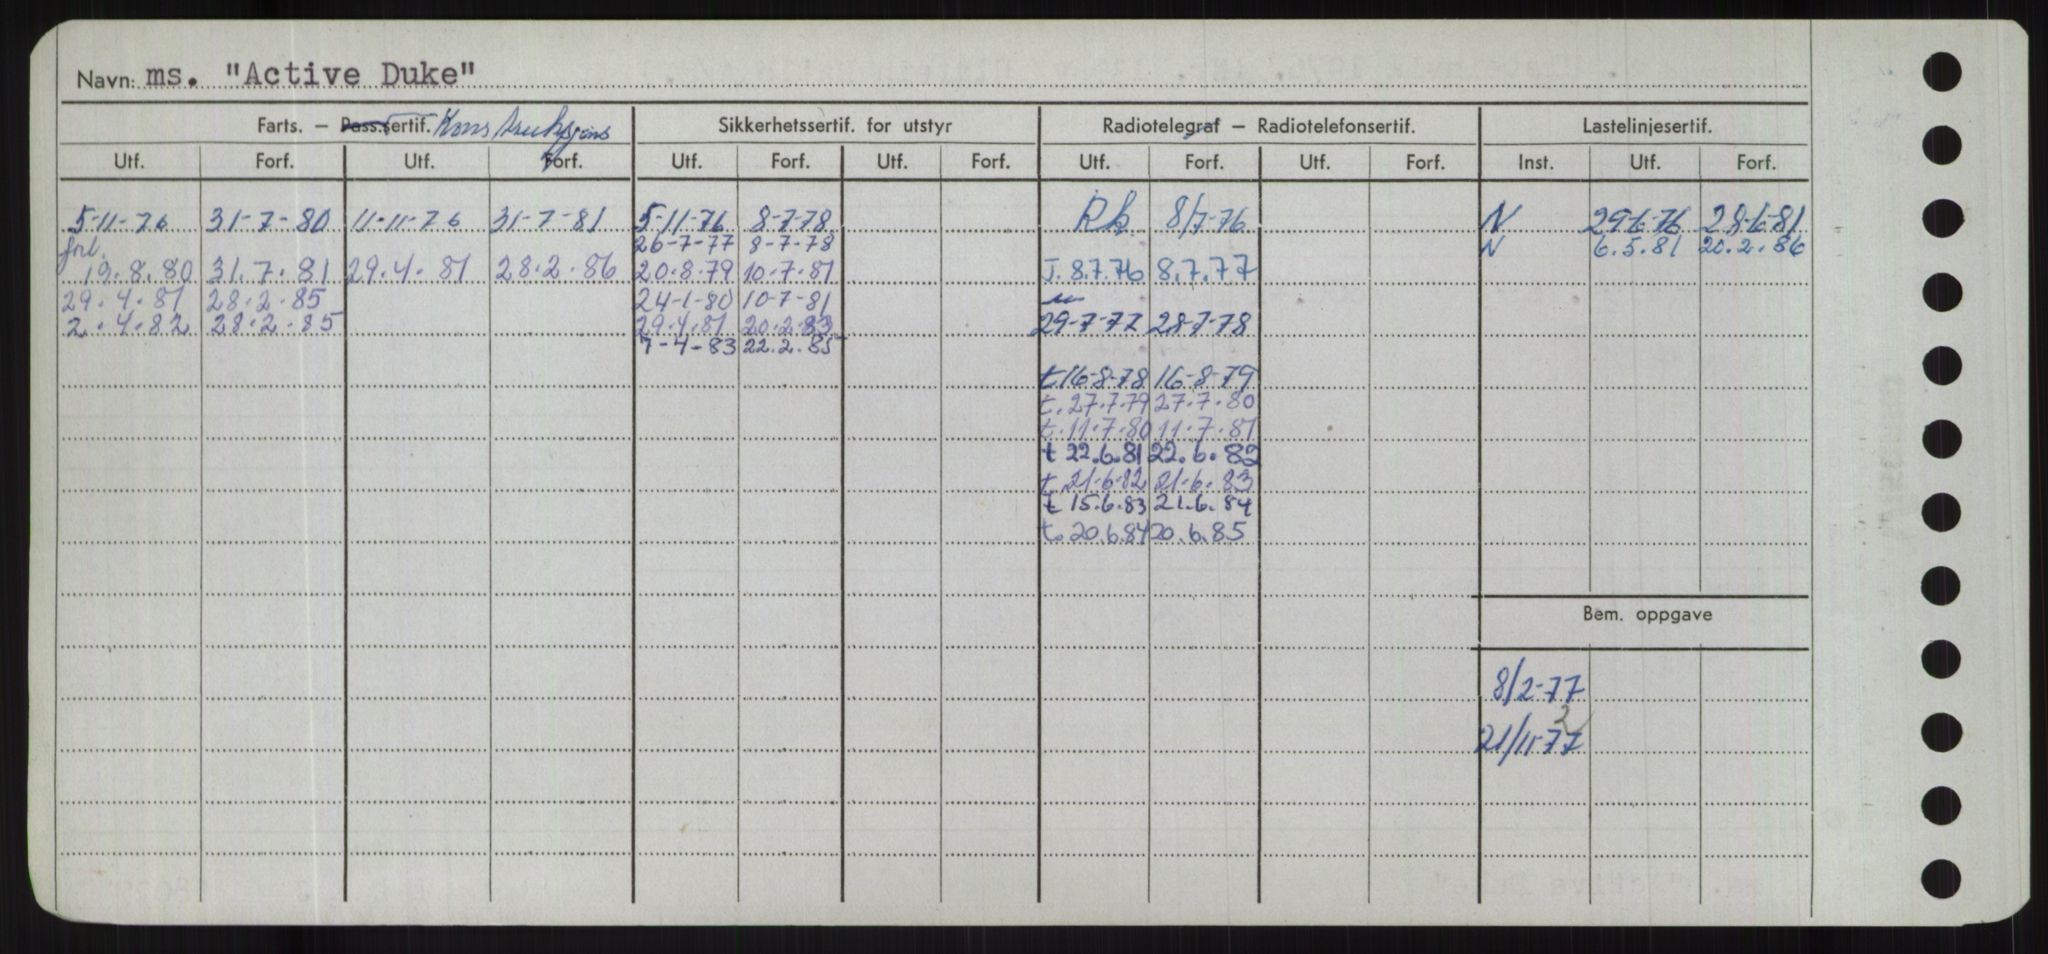 Navn: ms. "Active Duke"
Farts. — Pass.sertif. Konstruksjons Sikkerhetssertif. for utstyr Radiotelegraf — Radiotelefonsertif. Lastelinjesertif.
Utf. Forf. Utf. Forf. Utf. Forf. Utf. Forf. Utf. Forf. Utf. Forf. Inst. Utf. Forf.
5-11-76 31-7-80 11-11-76 31-7-81 5-11-76 8-7-78 Rk 8/7-76 N 29-6-76 28-6-81
forl. 26-7-77 8-7-78 N 6.5.81 20.2.86
19.8.80 31.7.81 29.4.81 28.2.86 20.8.79 10.7.81 T. 8.7.76 8.7.77
29.4.81 28.2.85 24-1-80 10-7-81
2.4.82 28.2.85 29.4.81 20.2.83 29-7-77 28-7-78
7-4-83 22.2.85
t 16-8-78 16-8-79
t. 27.7.79 27.7.80
t. 11.7.80 11.7.81
t 22.6.81 22.6.82
t. 21.6.82 21.6.83
t 15.6.83 21.6.84
t. 20.6.84 20.6.85
Bem. oppgave
8/2-77
2
21/11-77